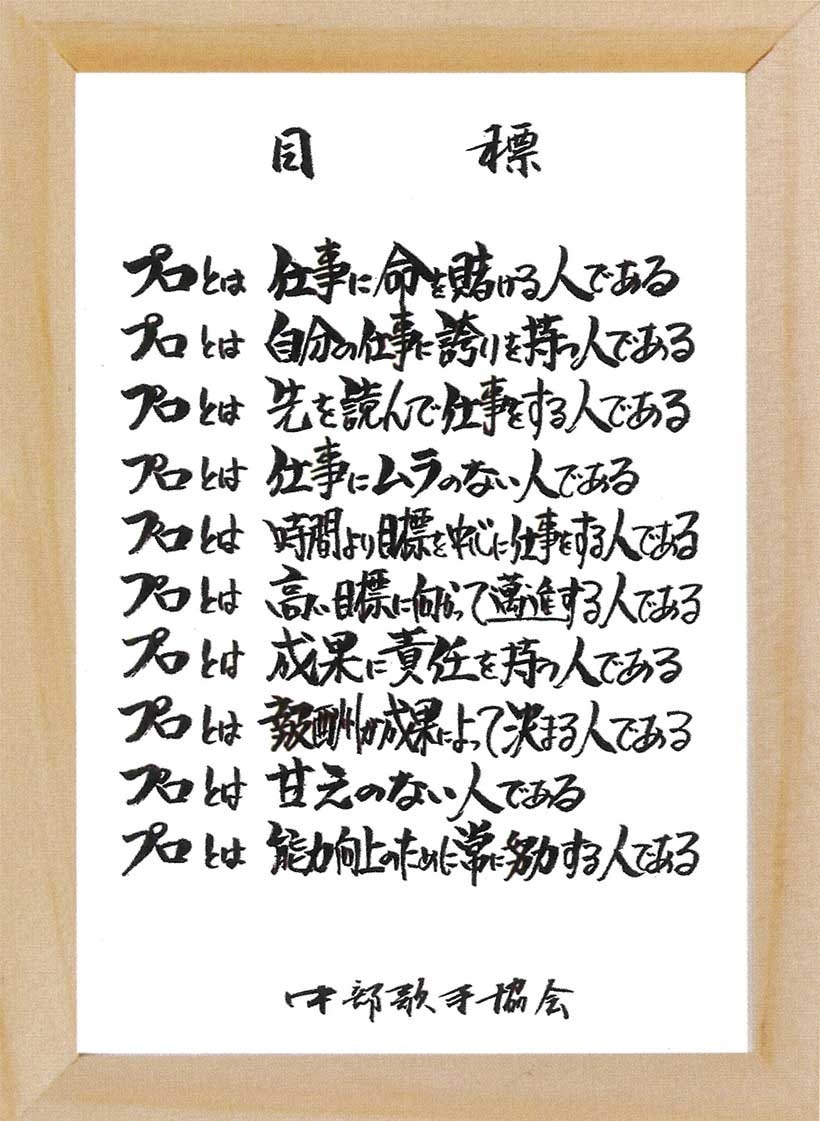 目標
プロとは 仕事に命を賭ける人である
プロとは 自分の仕事に誇りを持つ人である
プロとは 先を読んで仕事をする人である
プロとは 仕事にムラのない人である
プロとは 時間より目標を中心に仕事をする人である
プロとは 高い目標に向かって邁進する人である
プロとは 成果に責任を持つ人である
プロとは 報酬が成果によって決まる人である
プロとは 甘えのない人である
プロとは 能力向上のために常に努力する人である
中部歌手協会